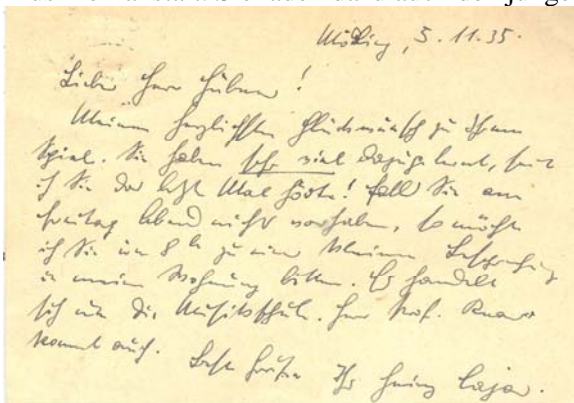 Mödling, 5.11.35.
Lieber Herr Hübner!
Meinen herzlichsten Glückwunsch zu Ihrem
Spiel. Sie haben sehr viel dazugelernt, seit
ich Sie das letzte Mal hörte! Falls Sie am
Freitag Abend nichts vorhaben, so möchte
ich Sie um 8 h zu einer kleinen Besprechung
in meine Wohnung bitten. Es handelt
sich um die Musikschule. Herr Prof.
kommt auch.
Beste Grüße Ihr